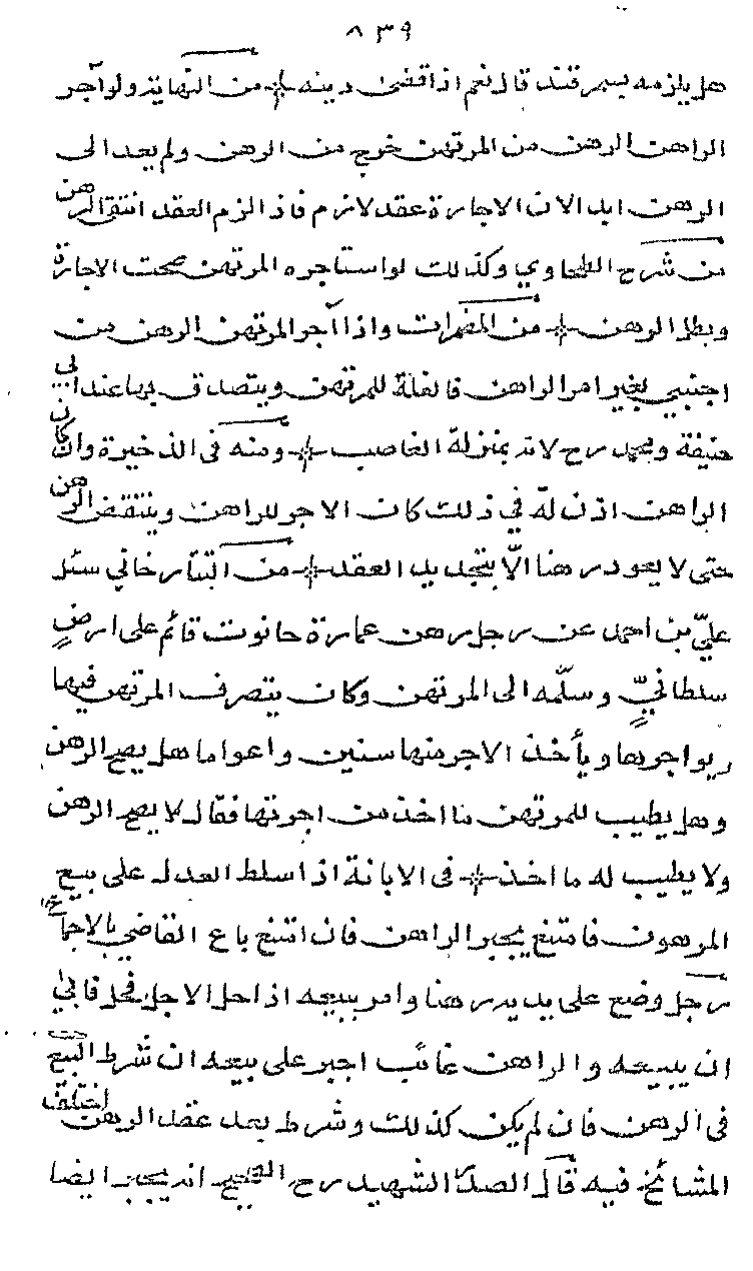 ٨٣٩
هل يلزمه بسمرقند قال نعم اذا قضى دينه ※ من النهاية ولو آجر
الراهن الرهن من المرتهن خرج من الرهن ولم يعد الى
الرهن ابدا لان الاجارة عقد لازم فاذا لزم العقد انتقى الرهن
من شرح الطحاوي وكذلك لو استاجره المرتهن صحت الاجارة
وبطل الرهن ※ من المضمرات واذا آجر المرتهن الرهن من
اجنبي بغير امر الراهن فالغلة للمرتهن ويتصدق بها عند ابي
حنيفة ومحمد رح لانه بمنزلة الغاصب ※ ومنه في الذخيرة وان كان
الراهن اذن له في ذلك كان الاجر للراهن وينتقض الرهن
حتى لا يعود رهنا الّا بتجديد العقد ※ من التتارخاني سئل
عليّ بن احمد عن رجل رهن عمارة حانوت قائم على ارضٍ
سلطانيٍّ وسلّمه الى المرتهن وكان يتصرف المرتهن فيها
ويواجرها ويأخذ الاجر منها سنين واعواما هل يصح الرهن
وهل يطيب للمرتهن ما اخذ من اجرتها فقال لا يصح الرهن
ولا يطيب له ما اخذ ※ فى الابانة اذا سلط العدل على بيع
المرهون فامتنع يجبر الراهن فان امتنع باع القاضي بالاجماع
رجل وضع على يديه رهنا وامر ببيعه اذا حل الاجل فحل فابىٰ
ان يبيعه والراهن غائب اجبر على بيعه ان شرط البيع
فى الرهن فان لم يكن كذلك وشرط بعد عقد الرهن اختلف
المشائخ فيه قال الصدر الشهيد رح الصحيح انه يجبر ايضا